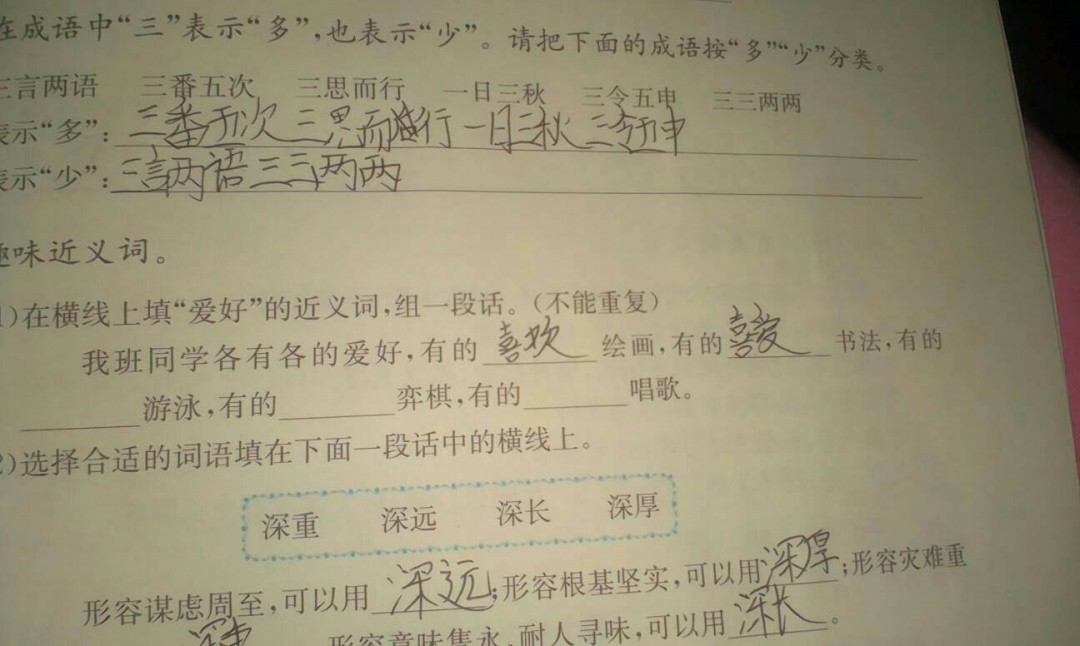 在成语中“三”表示“多”,也表示“少”。请把下面的成语按“多”“少”分类。
三言两语 三番五次 三思而行 一日三秋 三令五申 三三两两
表示“多”:三番五次 三思而行 一日三秋 三令五申
表示“少”:三言两语 三三两两
趣味近义词。
1)在横线上填“爱好”的近义词,组一段话。(不能重复)
我班同学各有各的爱好,有的 喜欢 绘画,有的 喜爱 书法,有的
游泳,有的 弈棋,有的 唱歌。
2)选择合适的词语填在下面一段话中的横线上。
深重 深远 深长 深厚
形容谋虑周至,可以用 深远;形容根基坚实,可以用 深厚;形容灾难重
深重 形容意味隽永、耐人寻味,可以用 深长。